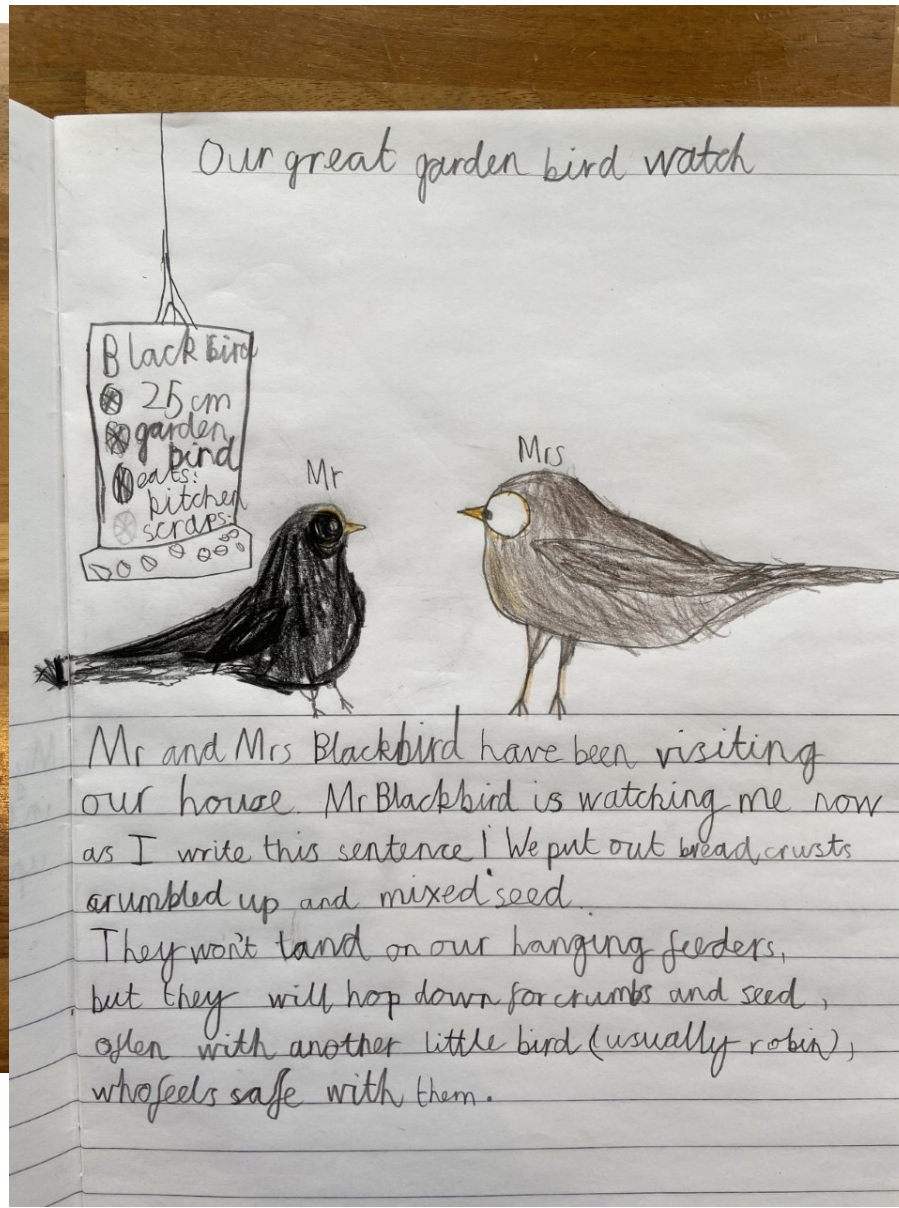 Our great garden bird watch
Blackbird
25cm
garden
bird
eats:
kitchen
scraps.
Mr
Mrs
Mr and Mrs Blackbird have been visiting
our house. Mr Blackbird is watching me now
as I write this sentence! We put out bread crusts
crumbled up and mixed seed.
They won't land on our hanging feeders,
but they will hop down for crumbs and seed,
often with another little bird (usually robin),
who feels safe with them.